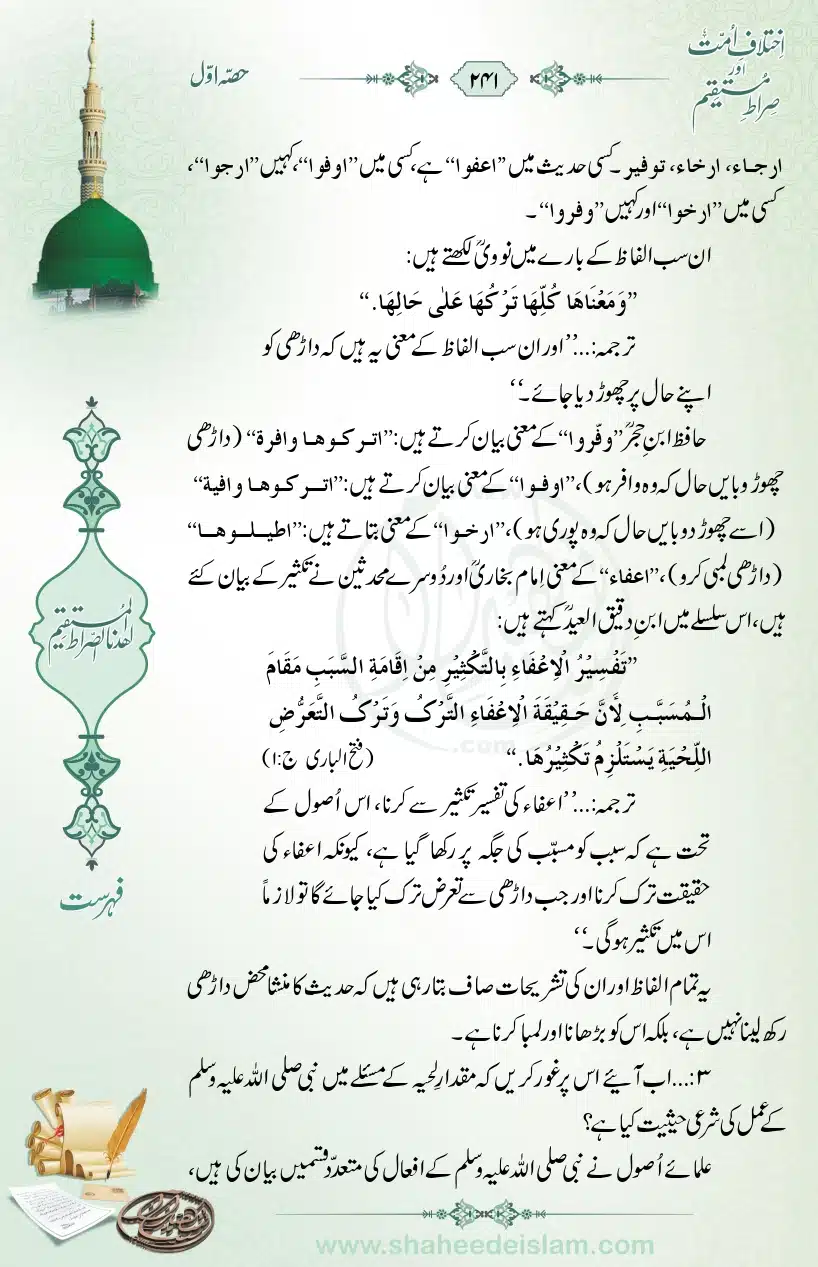 اِختلافِ اُمّت
اور
صِراطِ مُستقیم
۲۴۱
حصّہ اوّل
ارجاء، ارخاء، توفیر۔ کسی حدیث میں ”اعفوا“ ہے، کسی میں ”اوفوا“، کہیں ”ارجوا“،
کسی میں ”ارخوا“ اور کہیں ”وفروا“۔
ان سب الفاظ کے بارے میں نوویؒ لکھتے ہیں:
”وَمَعْنَاهَا كُلِّهَا تَرْكُهَا عَلٰى حَالِهَا.“
ترجمہ:...’’اور ان سب الفاظ کے معنی یہ ہیں کہ داڑھی کو
اپنے حال پر چھوڑ دیا جائے۔‘‘
حافظ ابنِ حجرؒ ”وفّروا“ کے معنی بیان کرتے ہیں: ”اترکوھا وافرة“ (داڑھی
چھوڑو بایں حال کہ وہ وافر ہو)، ”اوفوا“ کے معنی بیان کرتے ہیں: ”اترکوھا وافیة“
(اسے چھوڑ دو بایں حال کہ وہ پوری ہو)، ”ارخوا“ کے معنی بتاتے ہیں: ”اطیلوھا“
(داڑھی لمبی کرو)، ”اعفاء“ کے معنی اِمام بخاریؒ اور دُوسرے محدثین نے تکثیر کے بیان کئے
ہیں، اس سلسلے میں ابنِ دقیق العیدؒ کہتے ہیں:
”تَفْسِيْرُ الْاِعْفَاءِ بِالتَّكْثِيْرِ مِنْ اِقَامَةِ السَّبَبِ مَقَامَ
الْمُسَبَّبِ لِأَنَّ حَقِيْقَةَ الْاِعْفَاءِ التَّرْكُ وَتَرْكُ التَّعَرُّضِ
اللِّحْيَةِ يَسْتَلْزِمُ تَكْثِيْرُهَا.“ (فتح الباری ج:۱)
ترجمہ:...’’اعفاء کی تفسیر تکثیر سے کرنا، اس اُصول کے
تحت ہے کہ سبب کو مسبّب کی جگہ پر رکھا گیا ہے، کیونکہ اعفاء کی
حقیقت ترک کرنا اور جب داڑھی سے تعرض ترک کیا جائے گا تو لازماً
اس میں تکثیر ہوگی۔‘‘
یہ تمام الفاظ اور ان کی تشریحات صاف بتا رہی ہیں کہ حدیث کا منشا محض داڑھی
رکھ لینا نہیں ہے، بلکہ اس کو بڑھانا اور لمبا کرنا ہے۔
۳:...اب آیئے اس پر غور کریں کہ مقدارِ لحیہ کے مسئلے میں نبی صلی اللہ علیہ وسلم
کے عمل کی شرعی حیثیت کیا ہے؟
علمائے اُصول نے نبی صلی اللہ علیہ وسلم کے افعال کی متعدّد قسمیں بیان کی ہیں،
اھدنا الصراط المستقیم
فہرست
.com
www.shaheedeislam.com